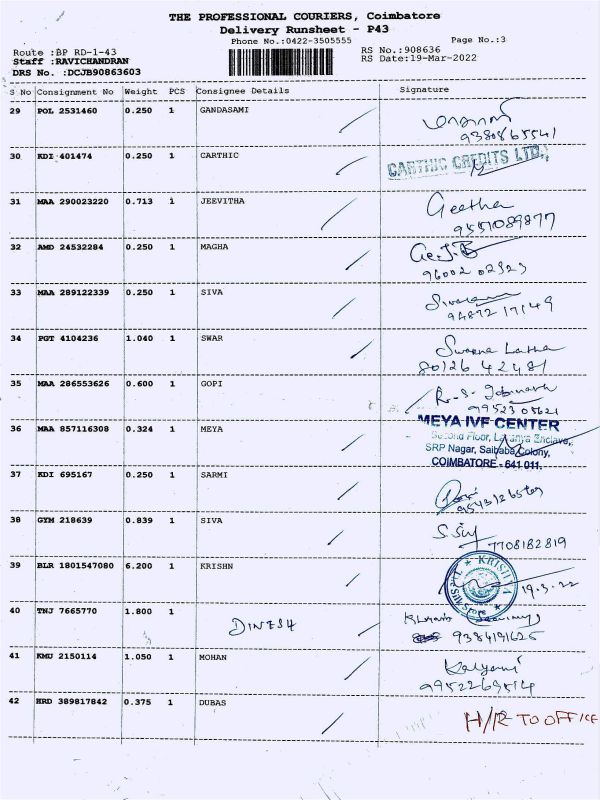 THE PROFESSIONAL COURIERS, Coimbatore
Delivery Runsheet - P43
Phone No.:0422-3505555 Page No.:3
Route :BP RD-1-43 RS No.:908636
Staff :RAVICHANDRAN RS Date:19-Mar-2022
DRS No. :DCJB90863603
S No Consignment No Weight PCS Consignee Details Signature
29 POL 2531460 0.250 1 GANDASAMI
9380865541
30 KDI 401474 0.250 1 CARTHIC CARTHIC CREDITS LTD.,
31 MAA 290023220 0.713 1 JEEVITHA Geetha
9551089877
32 AMD 24532284 0.250 1 MAGHA
96002 02323
33 MAA 289122339 0.250 1 SIVA
94872 17149
34 PGT 4104236 1.040 1 SWAR Swarna Latha
80126 42481
35 MAA 286553626 0.600 1 GOPI
99523 05621
36 MAA 857116308 0.324 1 MEYA MEYA IVF CENTER
Second Floor, Lavanya Enclave,
SRP Nagar, Saibaba Colony,
COIMBATORE - 641 011.
37 KDI 695167 0.250 1 SARMI
38 GYM 218639 0.839 1 SIVA S. Siv
7708182819
39 BLR 1801547080 6.200 1 KRISHN KRISHNA
19.3.22
40 TNJ 7665770 1.800 1 DINESH
9384191625
41 KMU 2150114 1.050 1 MOHAN Kalyani
9952269514
42 HRD 389817842 0.375 1 DUBAS H/R TO OFFICE